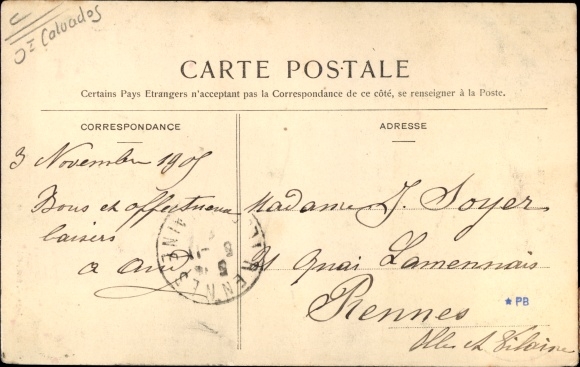 Calvados
CARTE POSTALE
Certains Pays Etrangers n'acceptant pas la Correspondance de ce côté, se renseigner à la Poste.
CORRESPONDANCE
ADRESSE
3 Novembre 1905
Bons et affectueux
baisers
a
Madame J. Soyer
quai Lamennais
Rennes
Ille et Vilaine
★ PB
RENNES